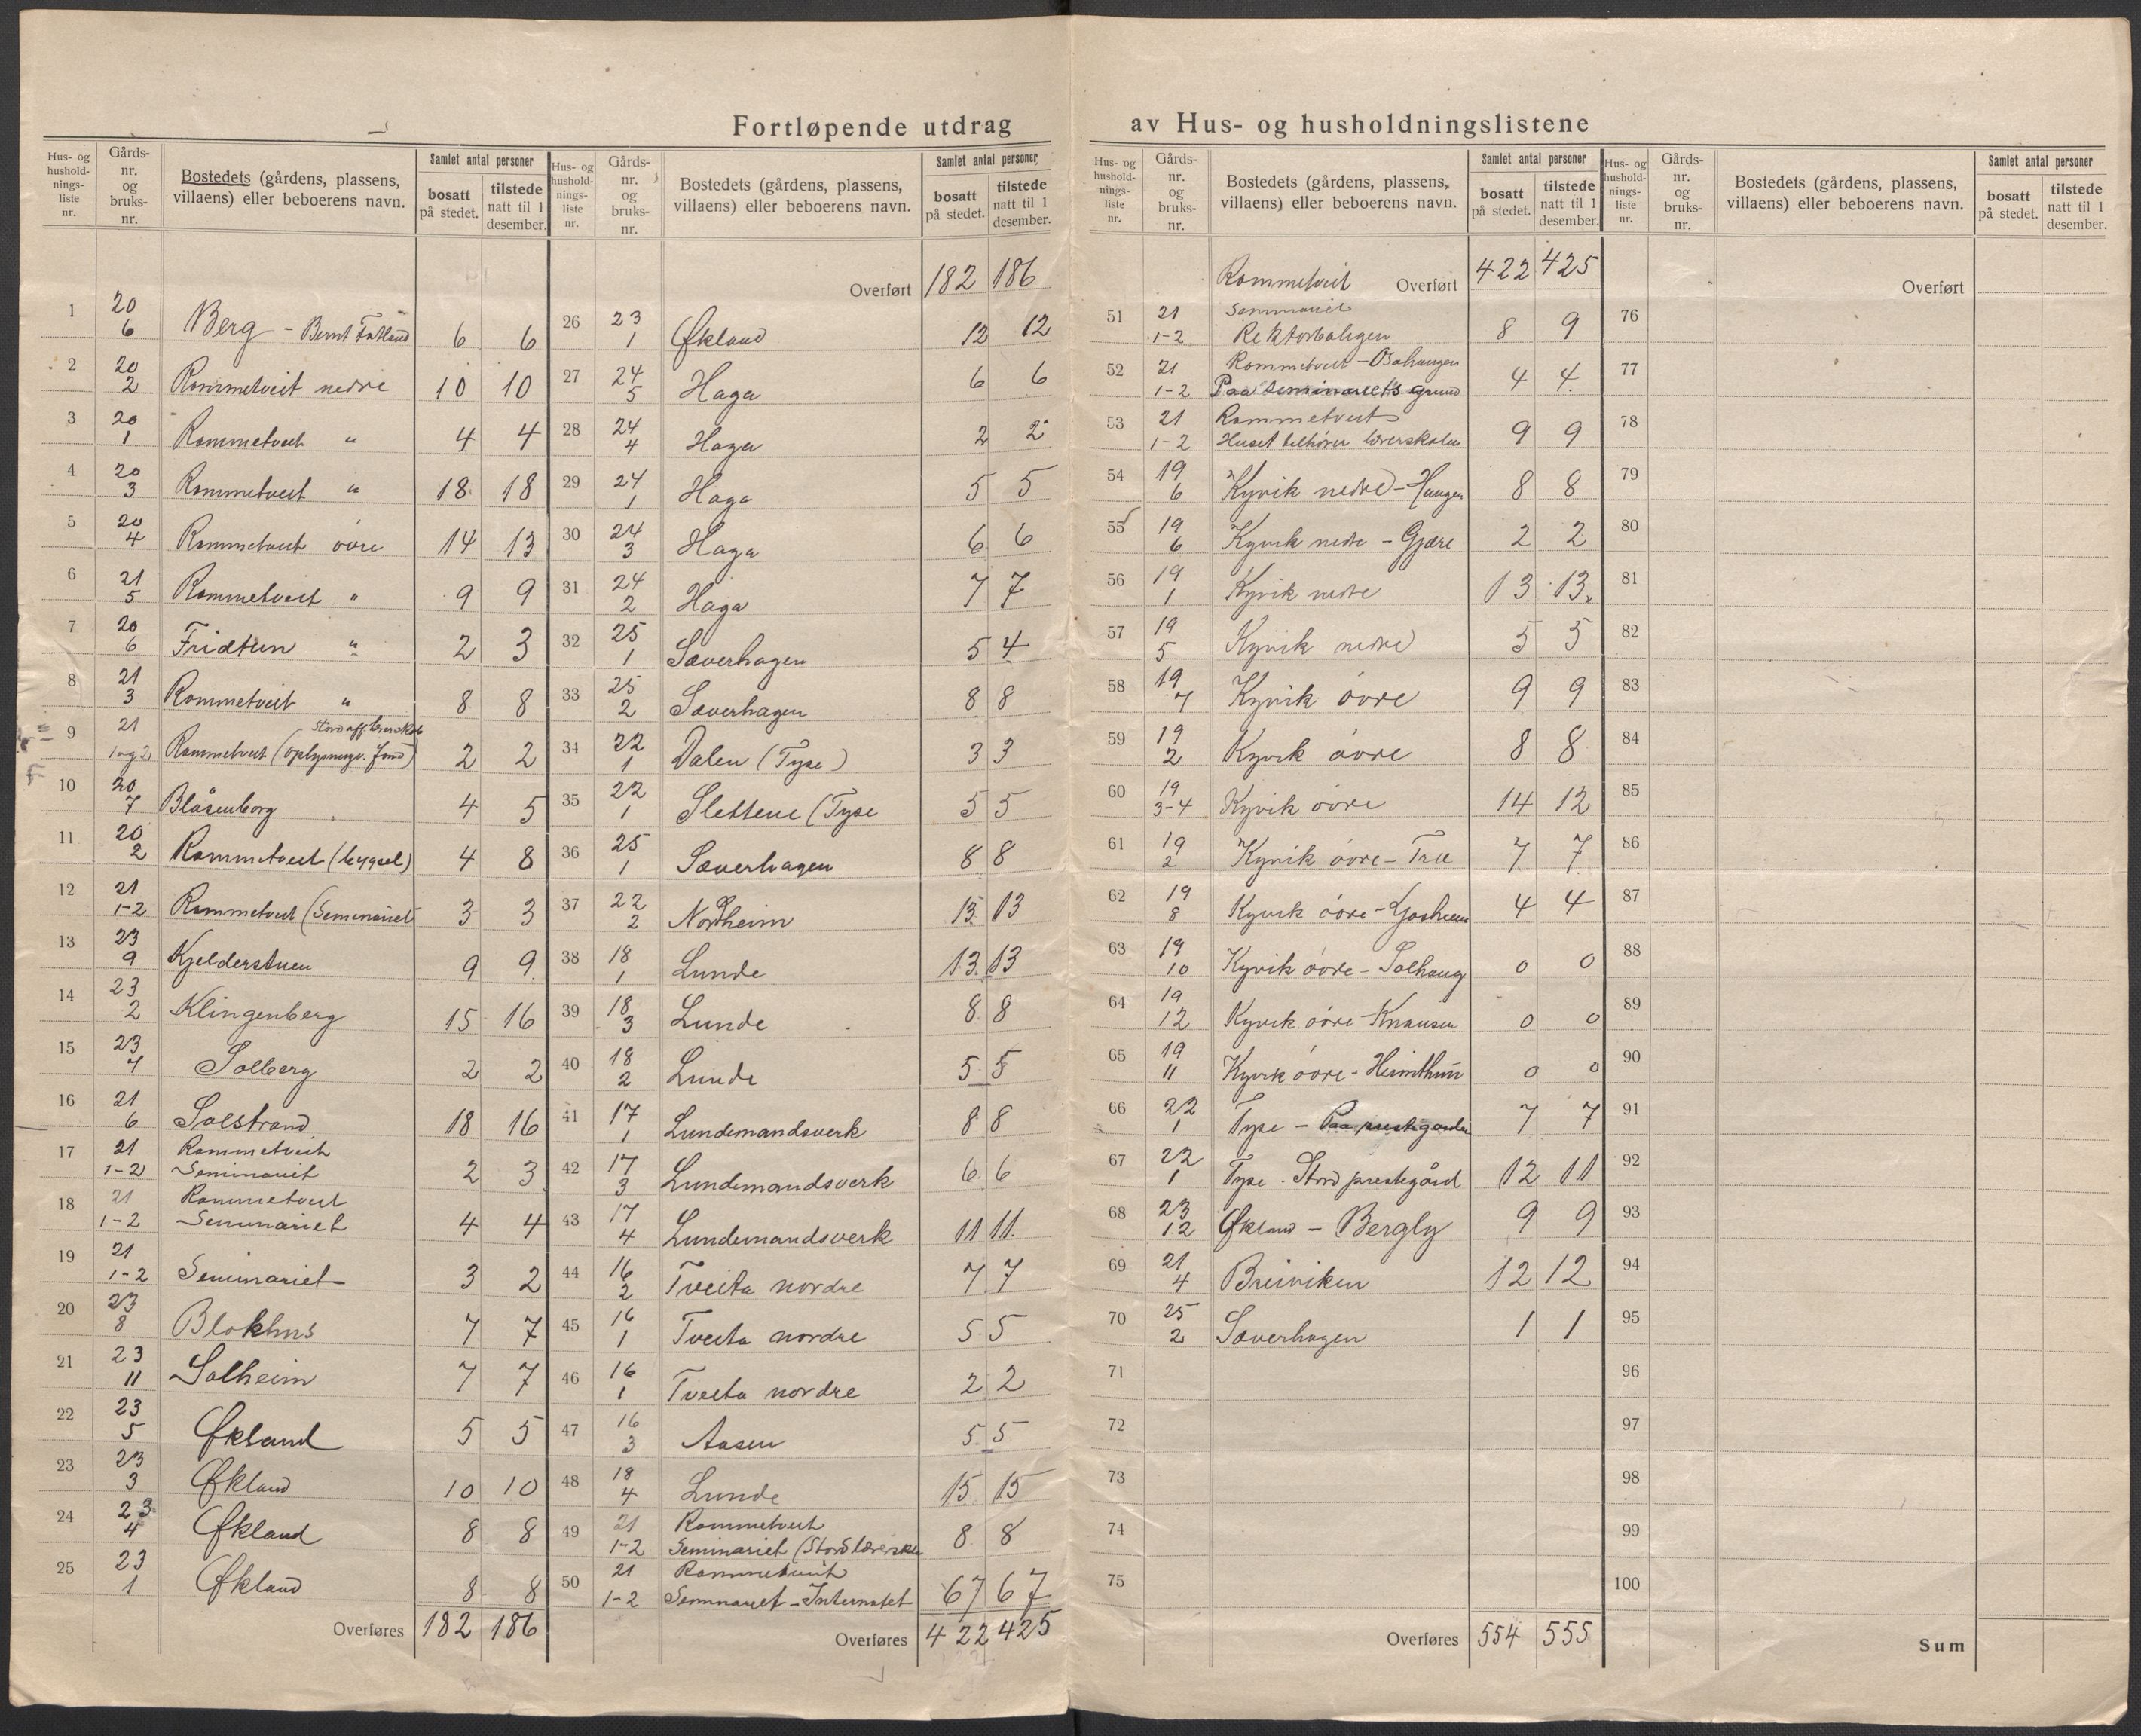 Fortløpende utdrag av Hus- og husholdningslistene
Hus- og hushold-nings-liste nr.
Gårds-nr. og bruks-nr.
Bostedets (gårdens, plassens, villaens) eller beboerens navn.
Samlet antal personer
bosatt på stedet.
tilstede natt til 1 desember.
1 20 6 Berg - Bernt Fatland 6 6
2 20 2 Rommetveit nedre 10 10
3 20 1 Rommetveit " 4 4
4 20 3 Rommetveit " 18 18
5 20 4 Rommetveit óvre 14 13
6 21 5 Rommetveit " 9 9
7 20 6 Fridtun " 2 3
8 21 3 Rommetveit " 8 8
9 21 1 og 2 Rommetveit (Oplysningsv. fond) 2 2
10 20 7 Blåsenborg 4 5
11 20 2 Rommetveit (bygsel) 4 8
12 21 1-2 Rommetveit (Seminariet 3 3
13 23 9 Kjelderstuen 9 9
14 23 2 Klingenberg 15 16
15 23 7 Solberg 2 2
16 21 6 Solstrand 18 16
17 21 1-2 Rommetveit Seminariet 2 3
18 21 1-2 Rommetveit Seminariet 4 4
19 21 1-2 Seminariet 3 2
20 23 8 Blokhus 7 7
21 23 11 Solheim 7 7
22 23 5 Økland 5 5
23 23 3 Økland 10 10
24 23 4 Økland 8 8
25 23 1 Økland 8 8
Overføres 182 186
Hus- og hushold-nings-liste nr.
Gårds-nr. og bruks-nr.
Bostedets (gårdens, plassens, villaens) eller beboerens navn.
Samlet antal personer
bosatt på stedet.
tilstede natt til 1 desember.
Overført 182 186
26 23 1 Økland 12 12
27 24 5 Haga 6 6
28 24 4 Haga 2 2
29 24 1 Haga 5 5
30 24 3 Haga 6 6
31 24 2 Haga 7 7
32 25 1 Sæverhagen 5 4
33 25 2 Sæverhagen 8 8
34 22 1 Dalen (Tyse) 3 3
35 22 1 Slettene (Tyse 5 5
36 25 1 Sæverhagen 8 8
37 22 2 Nordheim 13 13
38 18 1 Lunde 13 13
39 18 3 Lunde 8 8
40 18 2 Lunde 5 5
41 17 1 Lundemandsverk 8 8
42 17 3 Lundemandsverk 6 6
43 17 4 Lundemandsverk 11 11
44 16 2 Tveita nordre 7 7
45 16 1 Tveita nordre 5 5
46 16 1 Tveita nordre 2 2
47 16 3 Aasen 5 5
48 18 4 Lunde 15 15
49 21 1-2 Rommetveit Seminariet (Stord lærerskole 8 8
50 21 1-2 Rommetveit Seminariet - Internatet 67 67
Overføres 422 425
Hus- og hushold-nings-liste nr.
Gårds-nr. og bruks-nr.
Bostedets (gårdens, plassens, villaens) eller beboerens navn.
Samlet antal personer
bosatt på stedet.
tilstede natt til 1 desember.
Rommetveit Overført 422 425
51 21 1-2 Seminariet Rektorboligen 8 9
52 21 1-2 Rommetveit - Osahaugen Paa Seminariets grund 4 4
53 21 1-2 Rommetveit Huset tilhører lærerskolen 9 9
54 19 6 Kyvik nedre - Haugen 8 8
55 19 6 Kyvik nedre - Gjære 2 2
56 19 1 Kyvik nedre 13 13
57 19 5 Kyvik nedre 5 5
58 19 7 Kyvik óvre 9 9
59 19 2 Kyvik óvre 8 8
60 19 3-4 Kyvik óvre 14 12
61 19 2 Kyvik óvre - Træ 7 7
62 19 8 Kyvik óvre - 4 4
63 19 10 Kyvik óvre - Solhaug 0 0
64 19 12 Kyvik óvre - Knausen 0 0
65 19 11 Kyvik óvre - Heimthun 0 0
66 22 1 Tyse - Paa prestegarden 7 7
67 22 1 Tyse - Stord prestegård 12 11
68 23 12 Økland - Bergly 9 9
69 21 4 Breiviken 12 12
70 25 2 Sæverhagen 1 1
71
72
73
74
75
Overføres 554 555
Hus- og hushold-nings-liste nr.
Gårds-nr. og bruks-nr.
Bostedets (gårdens, plassens, villaens) eller beboerens navn.
Samlet antal personer
bosatt på stedet.
tilstede natt til 1 desember.
Overført
76
77
78
79
80
81
82
83
84
85
86
87
88
89
90
91
92
93
94
95
96
97
98
99
100
Sum